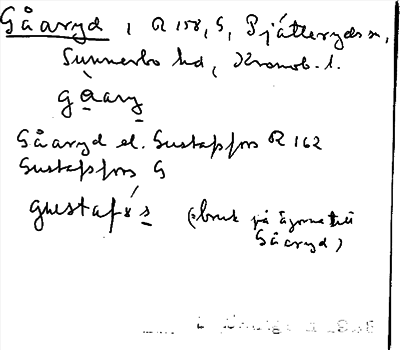 Gåaryd, R 158, G, Pjätteryds sn,
Sunnerbo hd, Kronob. l.
gàary
Gåaryd el. Gustafsfors R 162
Gustafsfors G
gustaf
(bruk på ägorna till
Gåaryd)